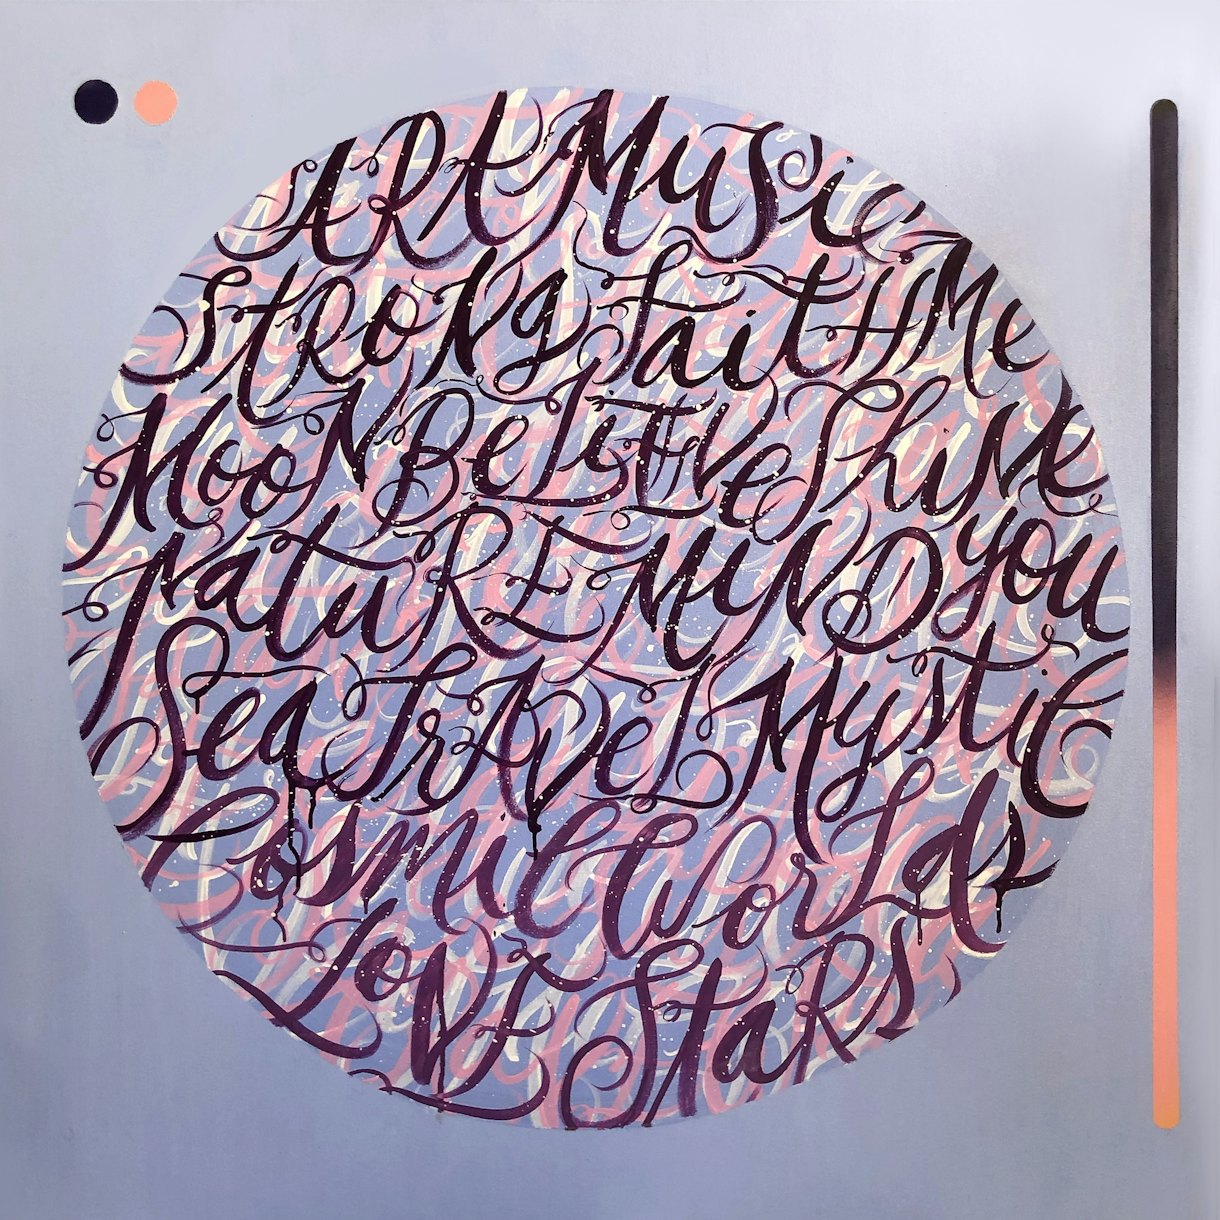 ARt MuSic
StRoNg FaitH Me
MooN BeLiEVe ShiNe
NatuRE MiND you
Sea TrAVeL Mystic
Cosmic WorLds
LoVE StaRS